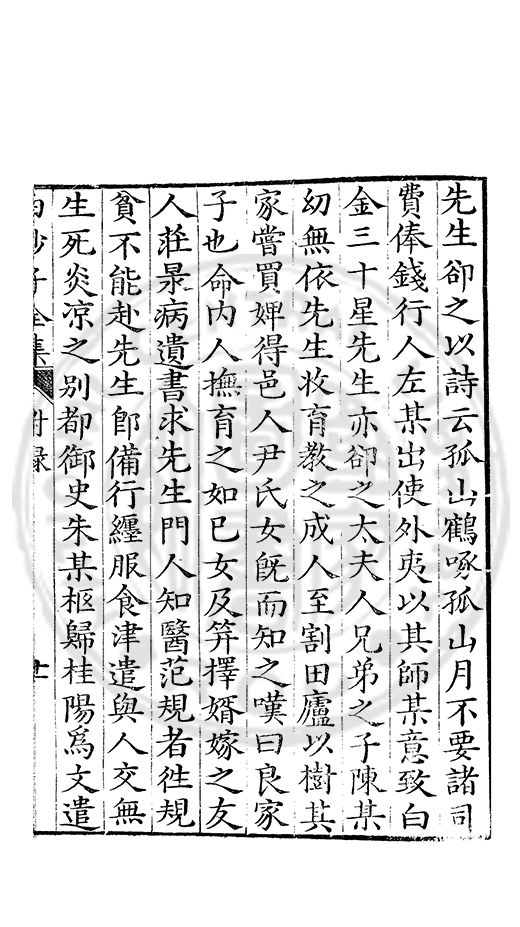 先生卻之以詩云孤山鶴啄孤山月不要諸司
費俸錢行人左某出使外夷以其師某意致白
金三十星先生亦卻之太夫人兄弟之子陳某
幼無依先生收育教之成人至割田廬以樹其
家嘗買婢得邑人尹氏女旣而知之嘆曰良家
子也命内人撫育之如巳女及筓擇婿嫁之友
人莊㫤病遺書求先生門人知醫范規者徃規
貧不能赴先生卽備行纏服食津遣與人交無
生死炎凉之别都御史朱某柩歸桂陽爲文遣
白沙子全集 附録